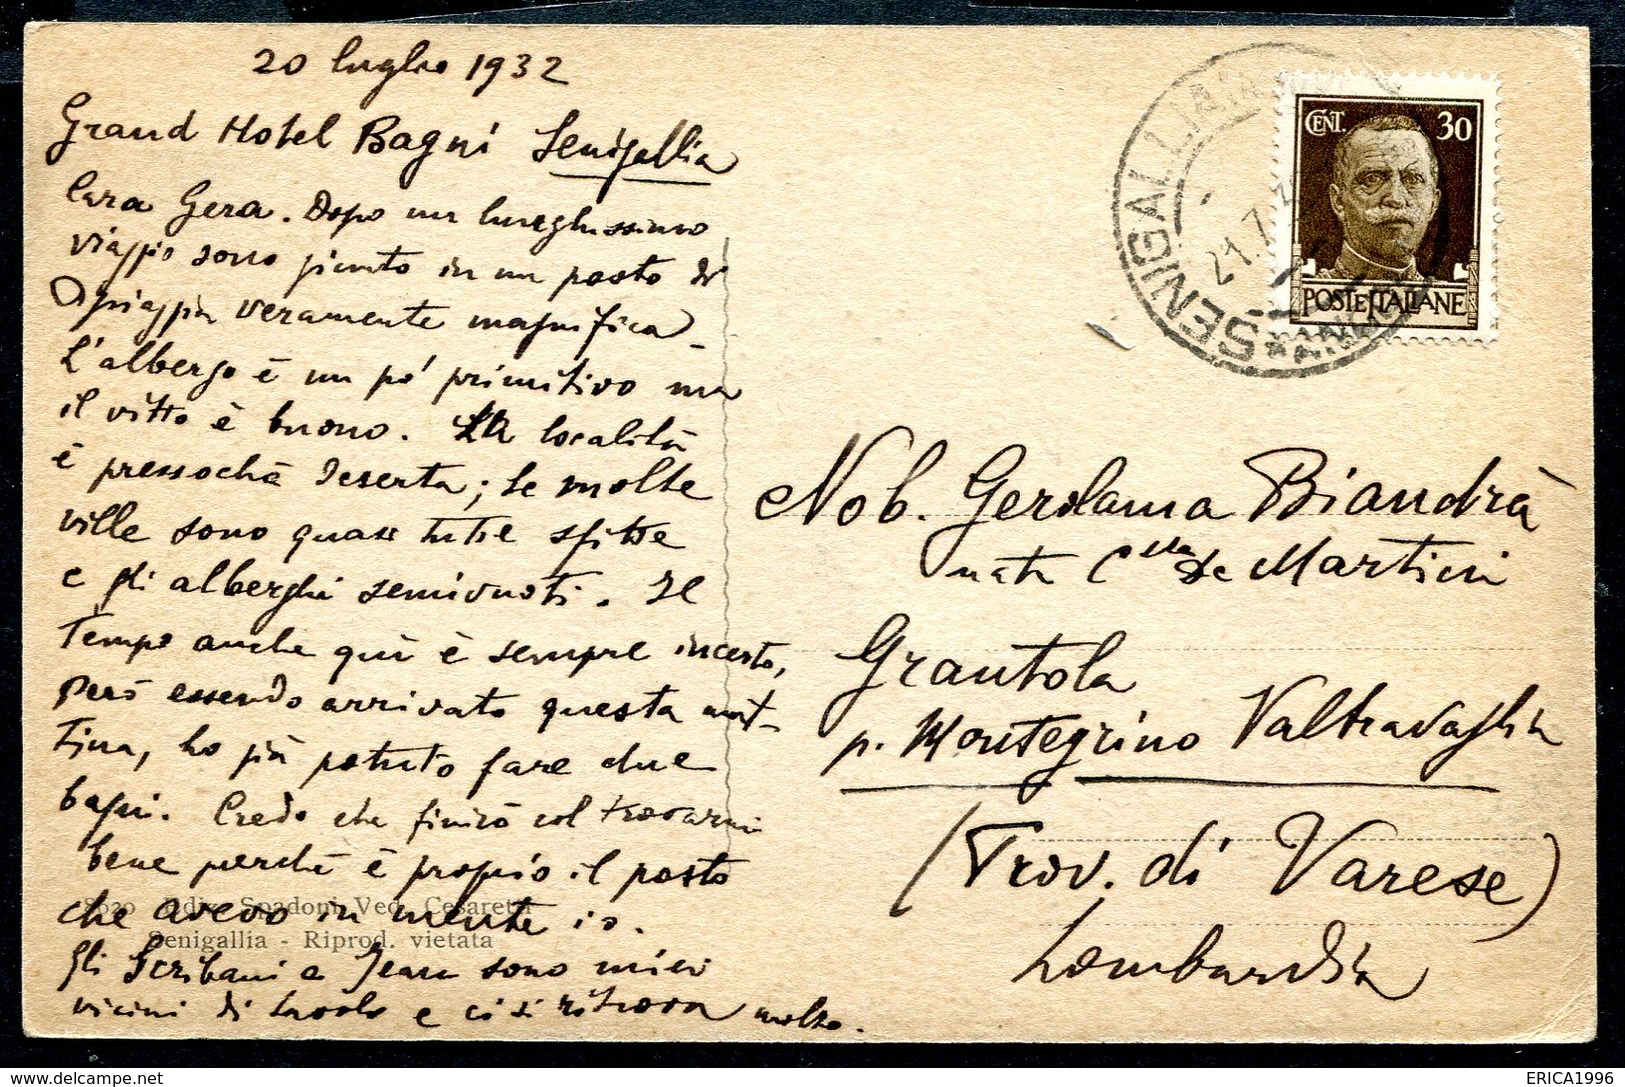 20 luglio 1932
Grand Hotel Bagni Senigallia
Cara Gera. Dopo un lunghissimo
viaggio sono giunto in un posto di
spiaggia veramente magnifica.
L'albergo è un pò primitivo ma
il vitto è buono. La località
è pressochè deserta; le molte
ville sono quasi tutte sfitte
e gli alberghi semivuoti. Il
tempo anche quì è sempre incerto,
però essendo arrivato questa mat-
tina, ho già potuto fare due
bagni. Credo che finirò col trovarmi
bene perchè è proprio il posto
che avevo in mente io.
Gli Scribani e Jean sono miei
vicini di tavolo e ci si ritrova molto.
8020 Ediz. Spadoni Ved. Cesaretti
Senigallia - Riprod. vietata
SENIGALLIA
21.7.
CENT. 30
POSTE ITALIANE
Nob. Gerolama Biandrà
nata C.ssa de Martini
Grantola
p. Montegrino Valtravaglia
(Prov. di Varese)
Lombardia
ERICA1996